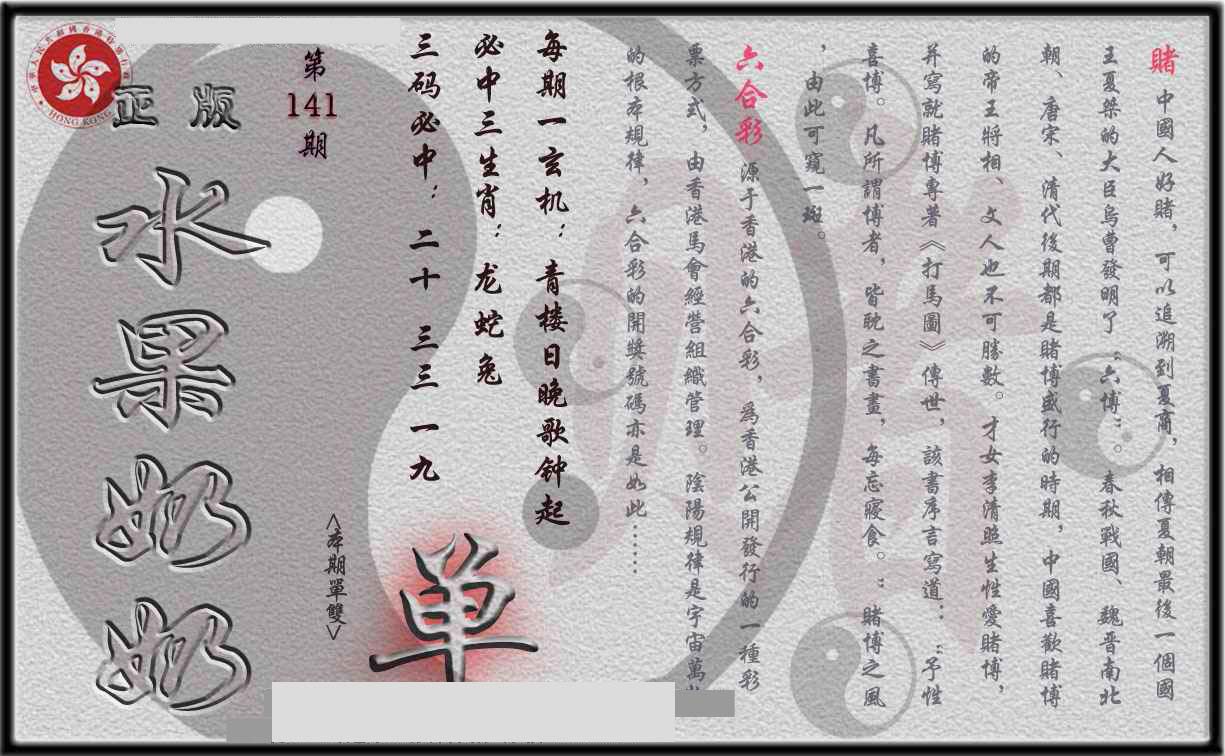 賭 中國人好賭，可以追溯到夏商，相傳夏朝最後一個國
王夏桀的大臣烏曹發明了“六博”。春秋戰國、魏晋南北
朝、唐宋、清代後期都是賭博盛行的時期，中國喜歡賭博
的帝王將相、文人也不可勝數。才女李清照生性愛賭博，
并寫就賭博專著《打馬圖》傳世，該書序言寫道：“予性
喜博。凡所謂博者，皆耽之書畫，每忘寢食。”賭博之風
，由此可窺一斑。
六合彩 源于香港的六合彩，爲香港公開發行的一種彩
票方式，由香港馬會經營組織管理。陰陽規律是宇宙萬
的根本規律，六合彩的開獎號碼亦是如此……
每期一玄机：青楼日晚歌钟起
必中三生肖：龙蛇兔
三码必中：二十 三三 一九
<本期單雙>
单
第
141
期
正版
水果奶奶
HONG KONG